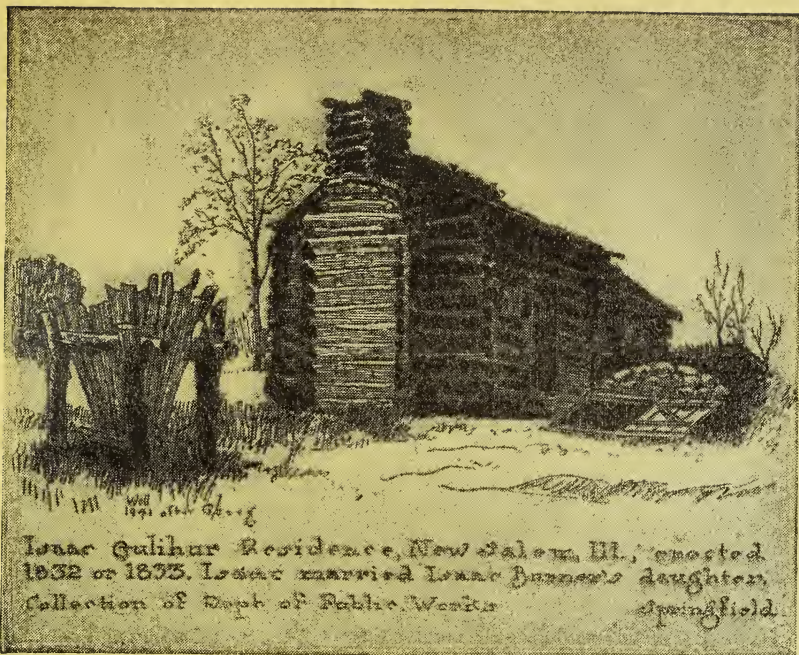 Well
1941 after
Isaac Gulihur Residence, New Salem, Ill., erected
1832 or 1833. Isaac married Isaac Burner's daughter.
Collection of Dept of Public Works Springfield